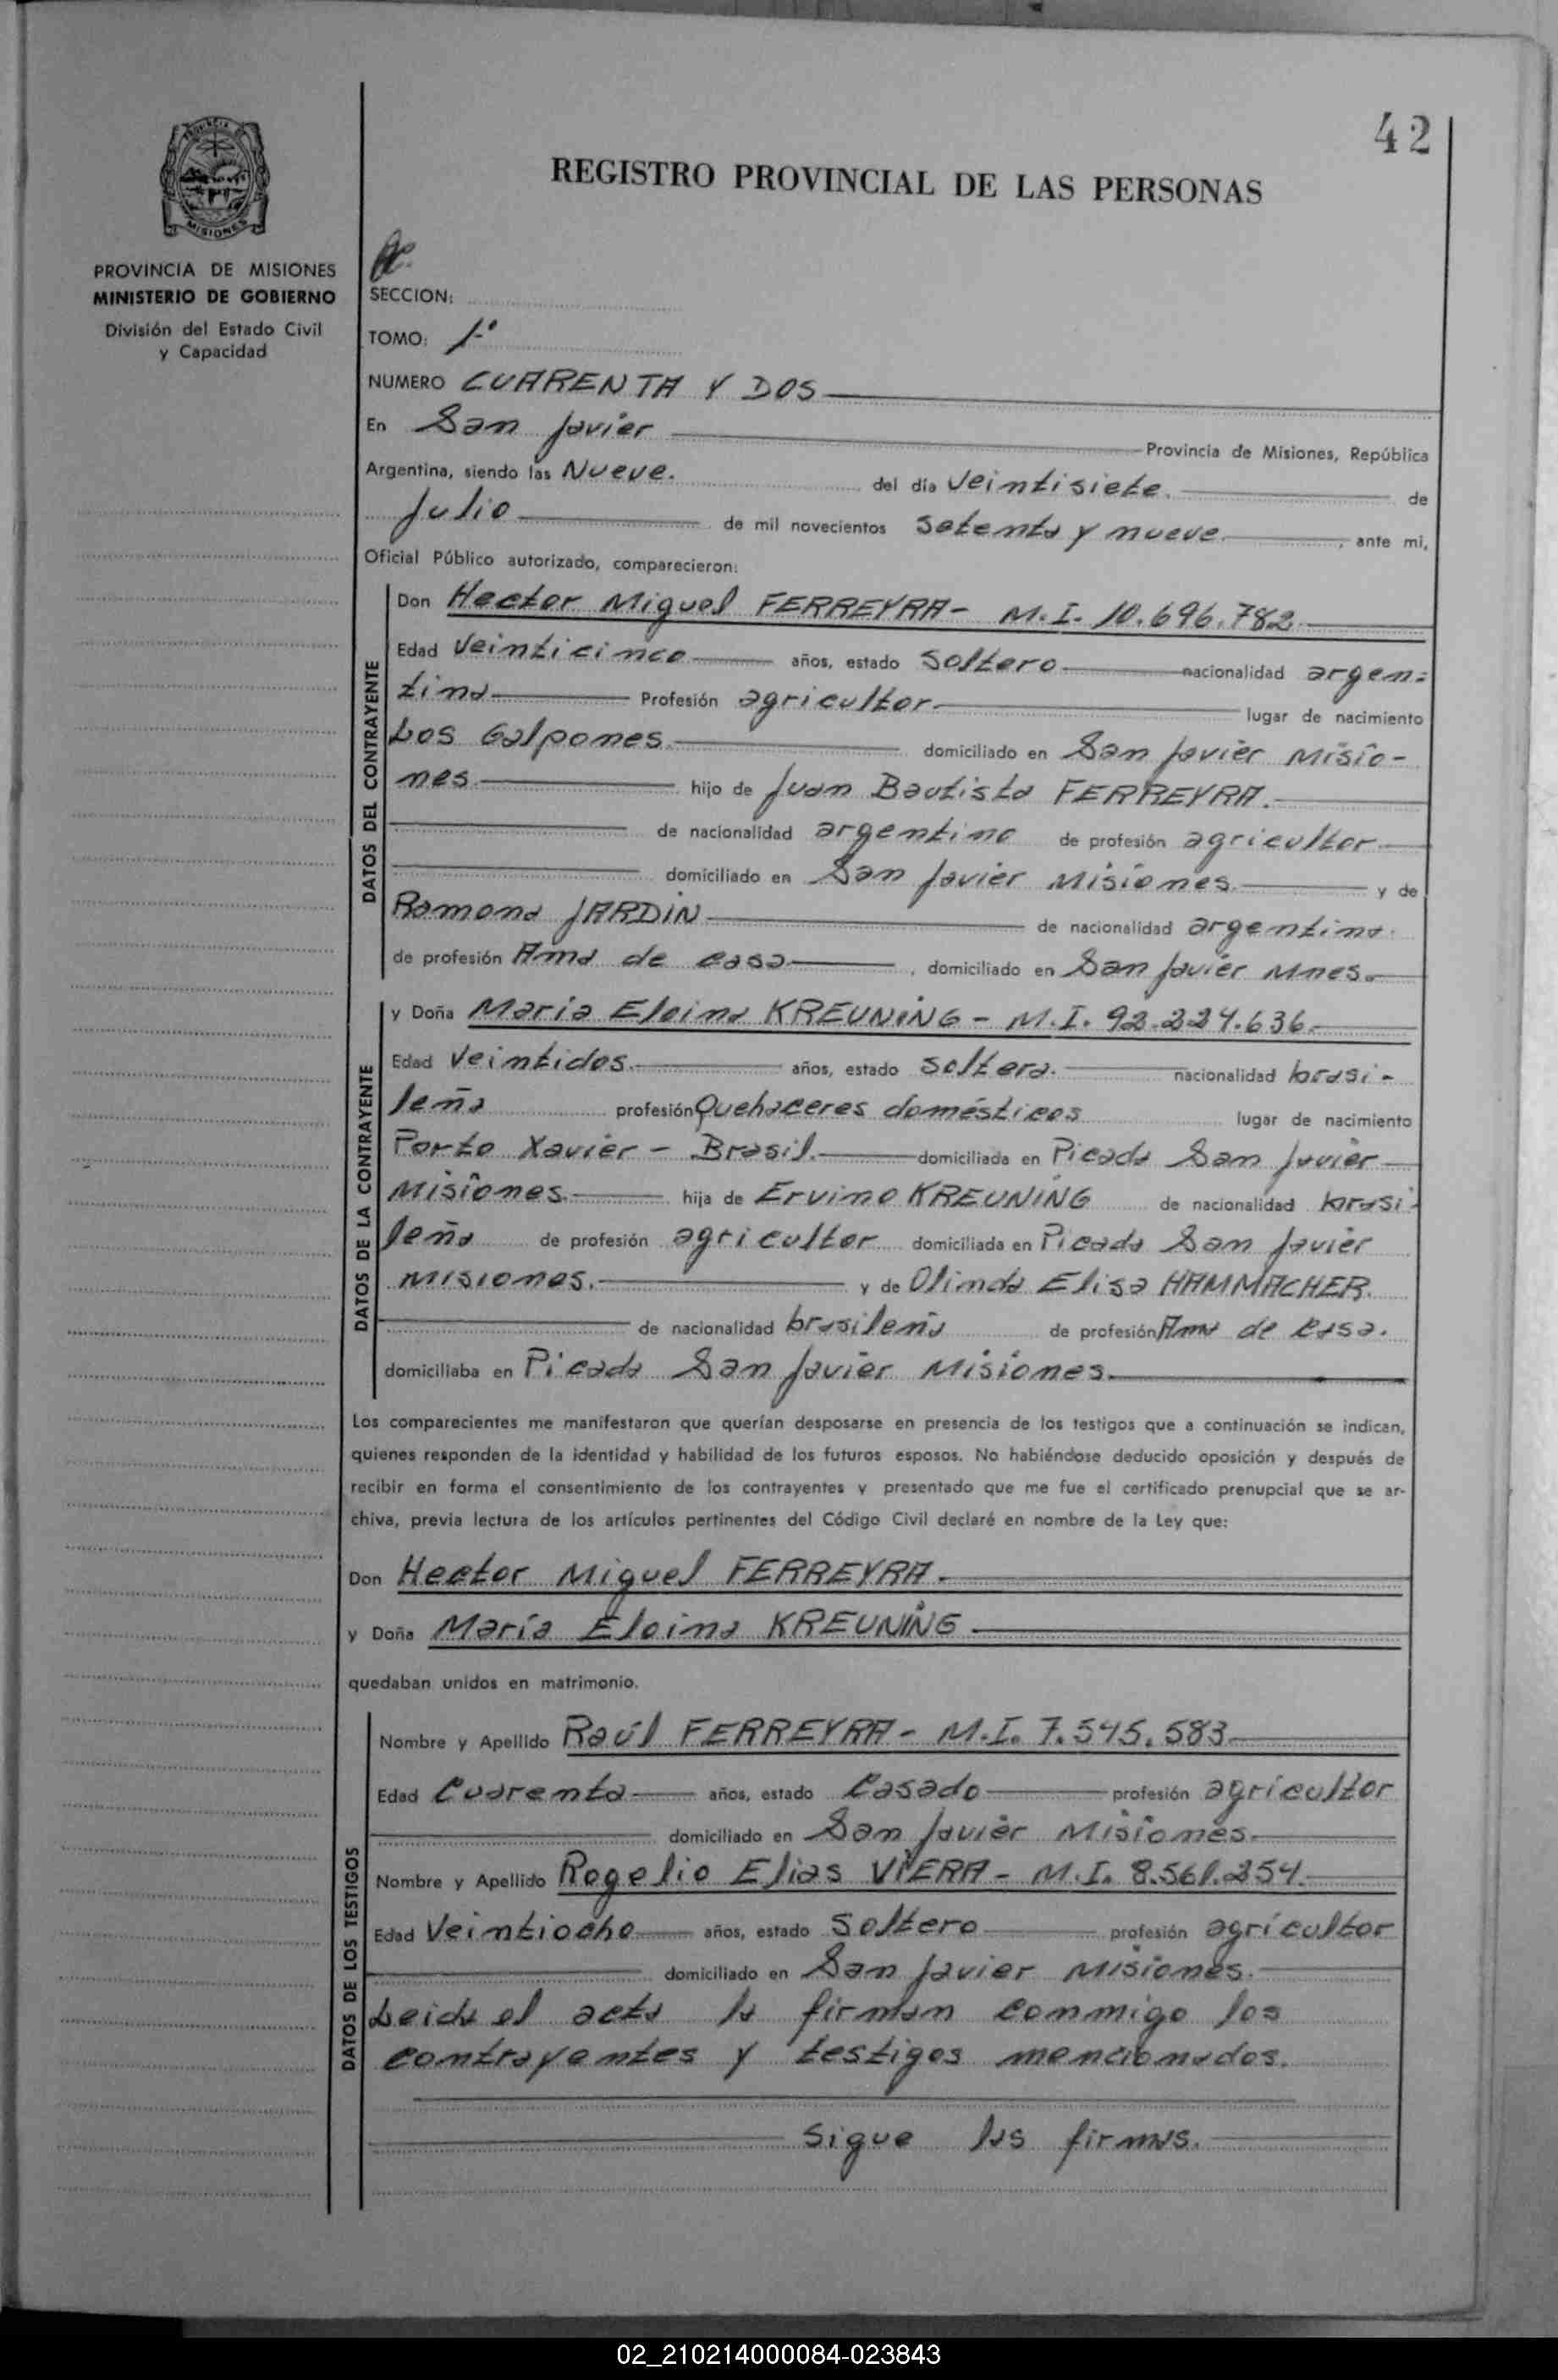 42
REGISTRO PROVINCIAL DE LAS PERSONAS
PROVINCIA DE
MISIONES
PROVINCIA DE MISIONES
MINISTERIO DE GOBIERNO
División del Estado Civil
y Capacidad
SECCION:
TOMO: 1º
NUMERO CUARENTA Y DOS
En San Javier Provincia de Misiones, República
Argentina, siendo las Nueve. del día veintisiete. de
Julio de mil novecientos setenta y nueve , ante mi,
Oficial Público autorizado, comparecieron:
DATOS DEL CONTRAYENTE
Don Hector Miguel FERREYRA- M.I. 10.696.782
Edad veinticinco años, estado soltero nacionalidad argen-
tina Profesión agricultor. lugar de nacimiento
Los Galpones. domiciliado en San Javier Misio-
nes. hijo de Juan Bautista FERREYRA.
de nacionalidad argentino de profesión agricultor
domiciliado en San Javier Misiones. y de
Ramona JARDIN de nacionalidad argentina.
de profesión Ama de casa , domiciliado en San Javier Mnes.
DATOS DE LA CONTRAYENTE
y Doña María Eloina KREUNING - M.I. 92.224.636.
Edad veintidos. años, estado soltera. nacionalidad brasi-
leña profesión Quehaceres domésticos lugar de nacimiento
Porto Xavier - Brasil. domiciliada en Picada San Javier
Misiones. hija de Ervino KREUNING de nacionalidad brasi-
leña de profesión agricultor domiciliada en Picada San Javier
Misiones. y de Olinda Elisa HAMMACHER.
de nacionalidad brasileña de profesión Ama de casa.
domiciliaba en Picada San Javier Misiones.
Los comparecientes me manifestaron que querían desposarse en presencia de los testigos que a continuación se indican,
quienes responden de la identidad y habilidad de los futuros esposos. No habiéndose deducido oposición y después de
recibir en forma el consentimiento de los contrayentes y presentado que me fue el certificado prenupcial que se ar-
chiva, previa lectura de los artículos pertinentes del Código Civil declaré en nombre de la Ley que:
Don Hector Miguel FERREYRA.
y Doña María Eloina KREUNING
quedaban unidos en matrimonio.
DATOS DE LOS TESTIGOS
Nombre y Apellido Raúl FERREYRA- M.I. 7.545.583
Edad Cuarenta años, estado Casado profesión agricultor
domiciliado en San Javier Misiones.
Nombre y Apellido Rogelio Elias VIERA- M.I. 8.561.254.
Edad Veintiocho años, estado Soltero profesión agricultor
domiciliado en San Javier Misiones.
Leida el acta la firman conmigo los
contrayentes y testigos mencionados.
Sigue las firmas.
02_210214000084-023843